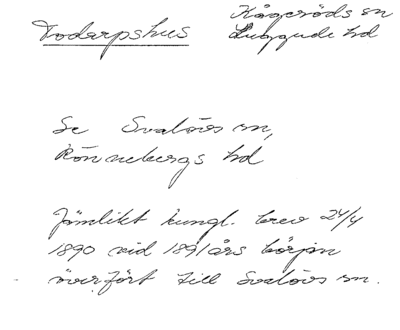 Todarpshus
Kågeröds sn
Luggude hd
Se Svalövs sn,
Rönnebergs hd
Jämlikt kungl. brev 24/4
1890 vid 1891 års början
överfört till Svalövs sn.